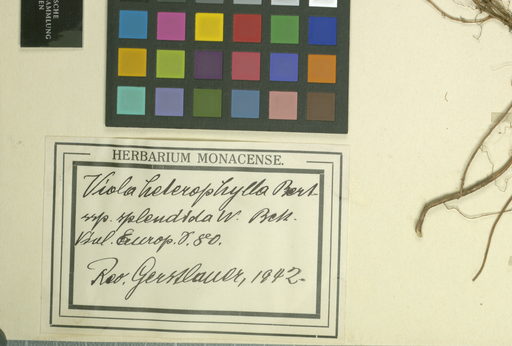 SCHE
SAMMLUNG
EN
HERBARIUM MONACENSE.
Viola heterophylla Bert
ssp. splendida W. Bck.
Viol. Europ. S. 80.
Rev. Gerstlauer, 1942.